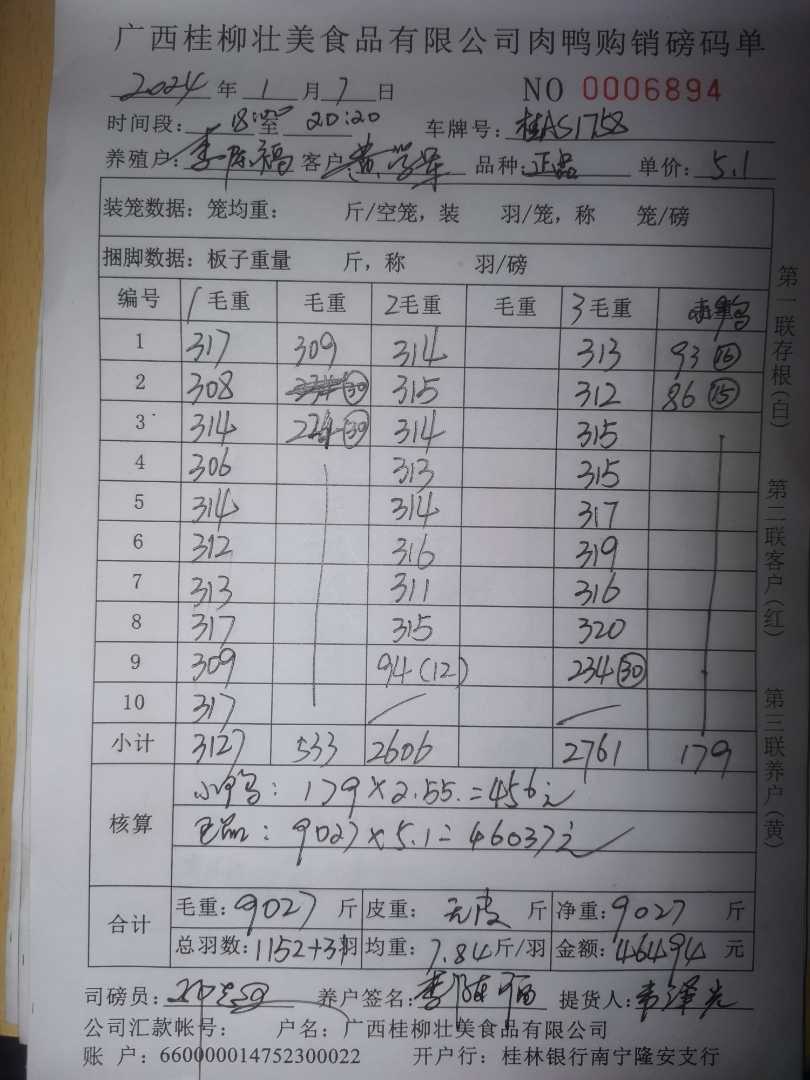 广西桂柳壮美食品有限公司肉鸭购销磅码单
2024 年 1 月 7 日 NO 0006894
时间段: 18:00 至 20:20 车牌号: 桂AS1758
养殖户: 李 福 客户 黄 品种: 正品 单价: 5.1
装笼数据: 笼均重: 斤/空笼, 装 羽/笼, 称 笼/磅
捆脚数据: 板子重量 斤, 称 羽/磅
编号 1毛重 毛重 2毛重 毛重 3毛重
1 317 309 314 313 93 (16)
2 308 (30) 315 312 86 (15)
3 314 224 (30) 314 315
4 306 313 315
5 314 314 317
6 312 316 319
7 313 311 316
8 317 315 320
9 309 94 (12) 234 (30)
10 317
小计 3127 533 2606 2761 179
核算
小 : 179×2.55.=456元
正品: 9027×5.1=46037元
合计
毛重: 9027 斤 皮重: 无皮 斤 净重: 9027 斤
总羽数: 1152+31羽 均重: 7.84 斤/羽 金额: 46494 元
司磅员: 养户签名: 李 提货人: 韦泽光
公司汇款帐号: 户名: 广西桂柳壮美食品有限公司
账 户: 660000014752300022 开户行: 桂林银行南宁隆安支行
第一联存根(白)
第二联客户(红)
第三联养户(黄)